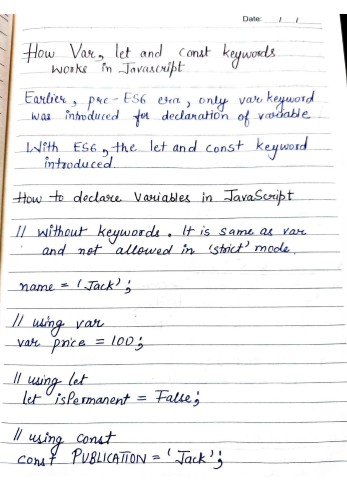 Date: / /
How Var, let and const keywords
works in Javascript
Earlier, pre-ES6 era, only var keyword
was introduced for declaration of variable
With ES6, the let and const keyword
introduced.
How to declare Variables in JavaScript
// without keywords. It is same as var
and not allowed in 'strict' mode.
name = 'Jack';
// using var
var price = 100;
// using let
let isPermanent = False;
// using const
const PUBLICATION = 'Jack';